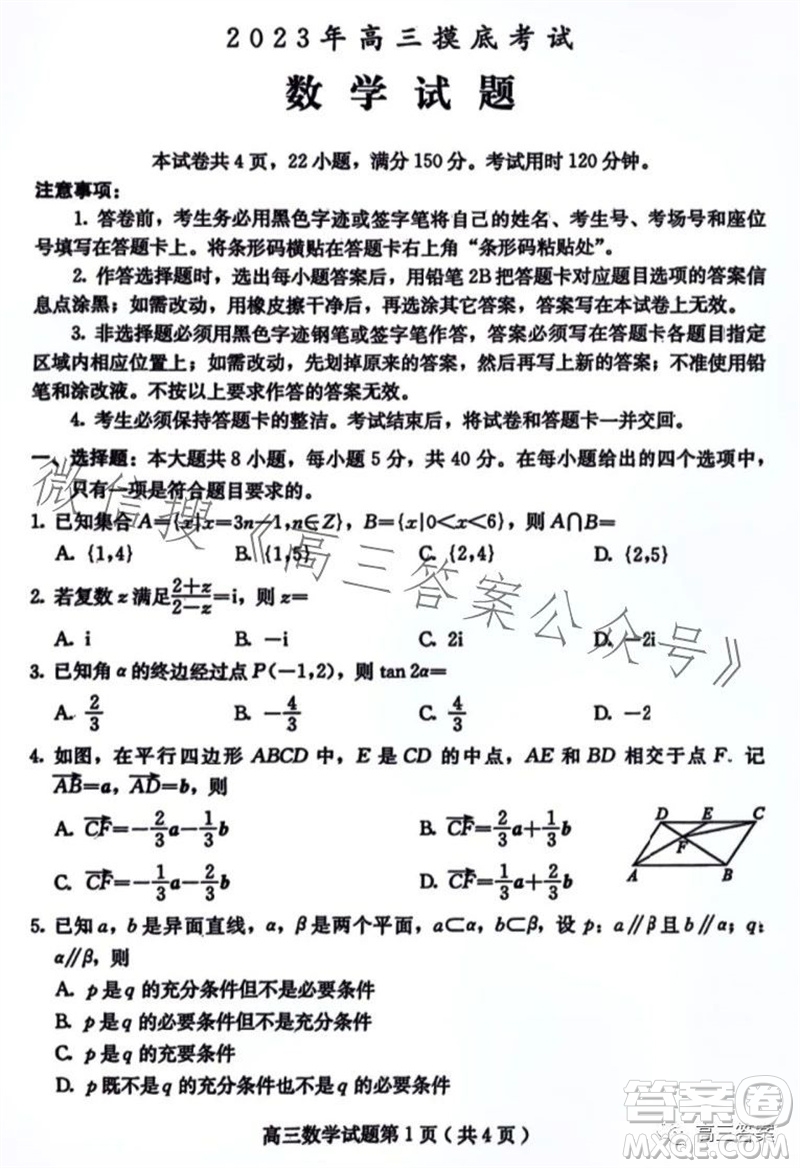 2023年高三摸底考试
数学试题
本试卷共4页，22小题，满分150分。考试用时120分钟。
注意事项：
1. 答卷前，考生务必用黑色字迹或签字笔将自己的姓名、考生号、考场号和座位
号填写在答题卡上。将条形码横贴在答题卡右上角“条形码粘贴处”。
2. 作答选择题时，选出每小题答案后，用铅笔2B把答题卡对应题目选项的答案信
息点涂黑；如需改动，用橡皮擦干净后，再选涂其它答案，答案写在本试卷上无效。
3. 非选择题必须用黑色字迹钢笔或签字笔作答，答案必须写在答题卡各题目指定
区域内相应位置上；如需改动，先划掉原来的答案，然后再写上新的答案；不准使用铅
笔和涂改液。不按以上要求作答的答案无效。
4. 考生必须保持答题卡的整洁。考试结束后，将试卷和答题卡一并交回。
一、选择题：本大题共8小题，每小题5分，共40分。在每小题给出的四个选项中，
只有一项是符合题目要求的。
1. 已知集合A={x|x=3n-1,n∈Z}，B={x|0<x<6}，则A∩B=
A. {1,4} B. {1,5} C. {2,4} D. {2,5}
2. 若复数z满足(2+z)/(2-z)=i，则z=
A. i B. -i C. 2i D. -2i
3. 已知角α的终边经过点P(-1,2)，则tan2α=
A. 2/3 B. -4/3 C. 4/3 D. -2
4. 如图，在平行四边形ABCD中，E是CD的中点，AE和BD相交于点F. 记
AB=a，AD=b，则
A. CF=-2/3a-1/3b B. CF=2/3a+1/3b
C. CF=-1/3a-2/3b D. CF=1/3a+2/3b
D E C
F
A B
5. 已知a，b是异面直线，α，β是两个平面，a⊂α，b⊂β，设p：a∥β且b∥α；q：
α∥β，则
A. p是q的充分条件但不是必要条件
B. p是q的必要条件但不是充分条件
C. p是q的充要条件
D. p既不是q的充分条件也不是q的必要条件
高三数学试题第1页（共4页）
微信搜《高三答案公众号》
答案圈
MXQE.COM
高三答案